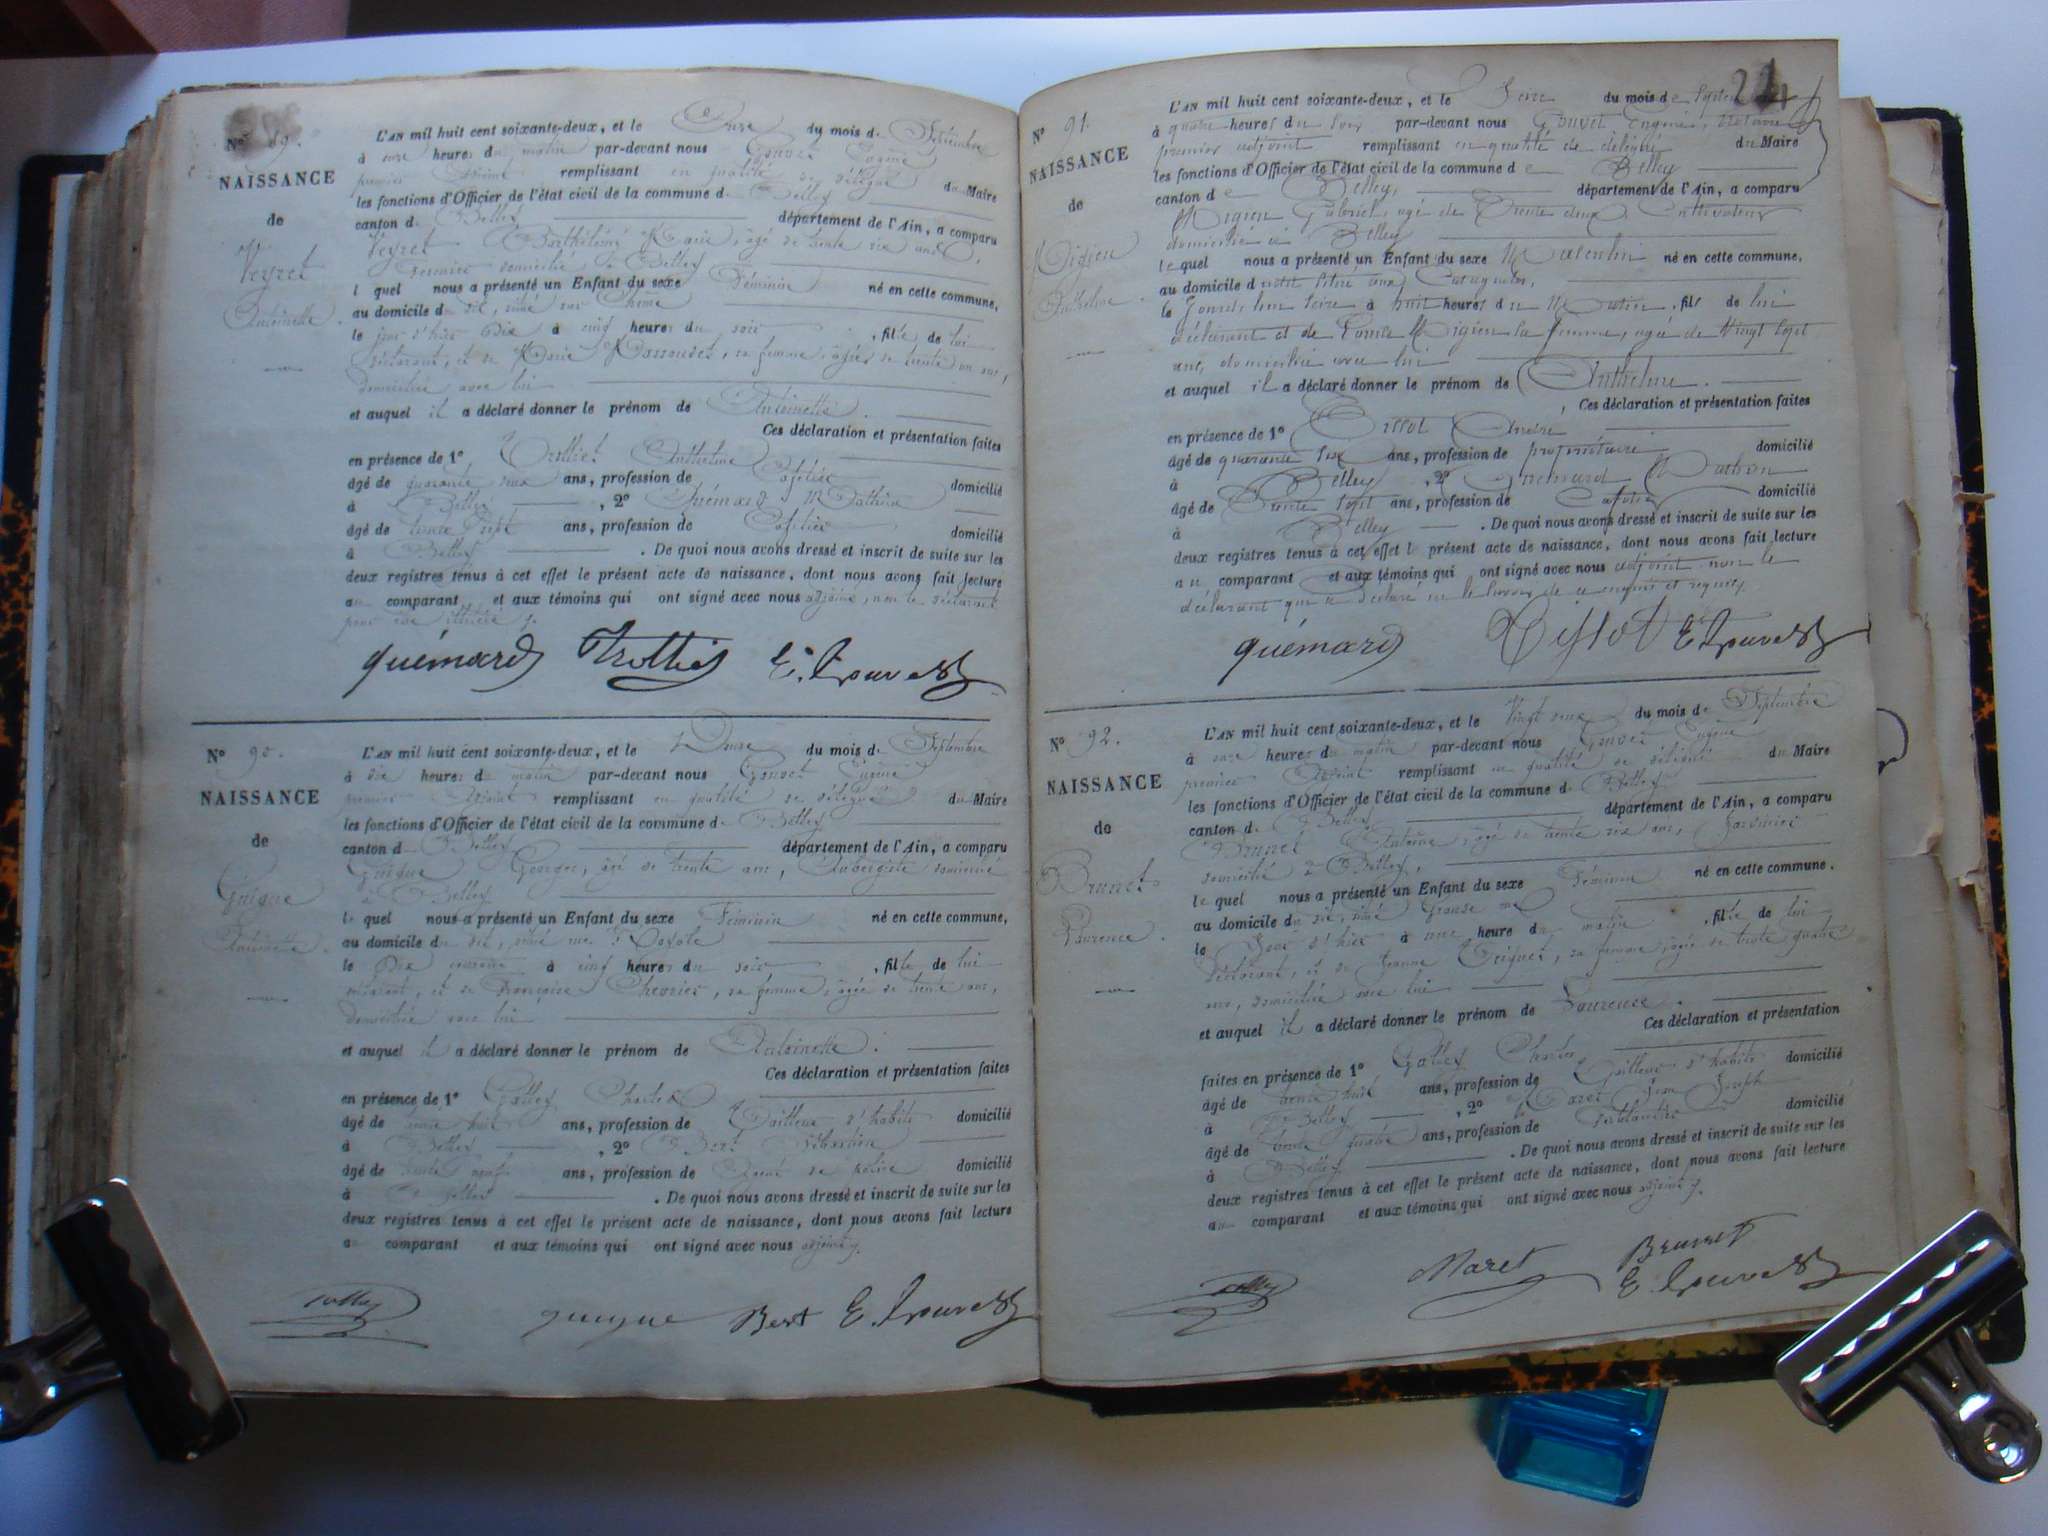 N° 89.
NAISSANCE
de
Veyret
Antoinette.
L'AN mil huit cent soixante-deux, et le Onze du mois de Septembre
à onze heures du matin par-devant nous Gouvet Eugène
premier Adjoint remplissant en qualité de délégué du Maire
les fonctions d'Officier de l'état civil de la commune d Belley
canton d Belley département de l'Ain, a comparu
Veyret Barthélemy Marie, âgé de trente six ans,
fermier domicilié à Belley
l quel nous a présenté un Enfant du sexe Féminin né en cette commune,
au domicile du dit, situé sur
le jour d'hier Dix à cinq heures du soir, fille de lui
déclarant, et de Marie, sa femme, âgée de trente un ans,
domiciliée avec lui
et auquel il a déclaré donner le prénom de Antoinette.
Ces déclaration et présentation faites
en présence de 1° Trolliet Anthelme
âgé de quarante deux ans, profession de Cafetier domicilié
à Belley, 2° Quémard Mathieu
âgé de trente sept ans, profession de Cafetier domicilié
à Belley. De quoi nous avons dressé et inscrit de suite sur les
deux registres tenus à cet effet le présent acte de naissance, dont nous avons fait lecture
au comparant et aux témoins qui ont signé avec nous adjoint, non le déclarant
pour être illitéré
quémard Trolliet E. Gouvet
N° 90.
NAISSANCE
de
Guigue
Antoinette.
L'AN mil huit cent soixante-deux, et le Douze du mois de Septembre
à dix heures du matin par-devant nous Gouvet Eugène
premier Adjoint remplissant en qualité de délégué du Maire
les fonctions d'Officier de l'état civil de la commune d Belley
canton d Belley département de l'Ain, a comparu
Guigue Georges, âgé de trente ans, Aubergiste domicilié
à Belley
le quel nous a présenté un Enfant du sexe Féminin né en cette commune,
au domicile du dit, situé
le Dix courant à cinq heures du soir, fille de lui
déclarant, et de Françoise Chevrier, sa femme, âgée de trente ans,
domiciliée avec lui
et auquel il a déclaré donner le prénom de Antoinette.
Ces déclaration et présentation faites
en présence de 1° Galley Charles
âgé de trente huit ans, profession de Tailleur d'habits domicilié
à Belley, 2° Bert Sébastien
âgé de trente neuf ans, profession de Agent de police domicilié
à Belley. De quoi nous avons dressé et inscrit de suite sur les
deux registres tenus à cet effet le présent acte de naissance, dont nous avons fait lecture
au comparant et aux témoins qui ont signé avec nous adjoint
Galley guigue Bert E. Gouvet
24
N° 91.
NAISSANCE
de
Migieu
Anthelme.
L'AN mil huit cent soixante-deux, et le Seize du mois de Septembre
à quatre heures du soir par-devant nous Gouvet Eugène, Notaire
premier adjoint remplissant en qualité de délégué du Maire
les fonctions d'Officier de l'état civil de la commune de Belley
canton de Belley, département de l'Ain, a comparu
Migieu Gabriel, agé de Trente deux, Cultivateur
domicilié à Belley
le quel nous a présenté un Enfant du sexe Masculin né en cette commune,
au domicile d
le Jourd'hui Seize à huit heures du Matin, fils de lui
déclarant et de Migieu sa femme, agée de Vingt Sept
ans, domiciliée avec lui
et auquel il a déclaré donner le prénom de Anthelme.
, Ces déclaration et présentation faites
en présence de 1° Tissot André
âgé de quarante ans, profession de propriétaire domicilié
à Belley, 2° Quemard Mathieu
âgé de Trente Sept ans, profession de Cafetier domicilié
à Belley. De quoi nous avons dressé et inscrit de suite sur les
deux registres tenus à cet effet le présent acte de naissance, dont nous avons fait lecture
au comparant et aux témoins qui ont signé avec nous adjoint non le
déclarant qui a déclaré ne le savoir de ce enquis et requis.
quémard Tissot E. Gouvet
N° 92.
NAISSANCE
de
Brunet
Laurence.
L'AN mil huit cent soixante-deux, et le Vingt deux du mois de Septembre
à onze heures du matin par-devant nous Gouvet Eugène
premier Adjoint remplissant en qualité de délégué du Maire
les fonctions d'Officier de l'état civil de la commune d Belley
canton d Belley département de l'Ain, a comparu
Brunet Antoine, âgé de trente six ans, Jardinier
domicilié à Belley,
le quel nous a présenté un Enfant du sexe Féminin né en cette commune.
au domicile du dit, situé Grande rue
le Jour d'hier à une heure du matin, fille de lui
déclarant, et de Jeanne, sa femme, âgée de trente quatre
ans, domiciliée avec lui
et auquel il a déclaré donner le prénom de Laurence.
Ces déclaration et présentation
faites en présence de 1° Galley Charles
âgé de trente huit ans, profession de Tailleur d'habits domicilié
à Belley, 2° Maret Jean Joseph
âgé de trente quatre ans, profession de Ferblantier domicilié
à Belley. De quoi nous avons dressé et inscrit de suite sur les
deux registres tenus à cet effet le présent acte de naissance, dont nous avons fait lecture
au comparant et aux témoins qui ont signé avec nous adjoint
Galley Maret Brunet
E. Gouvet